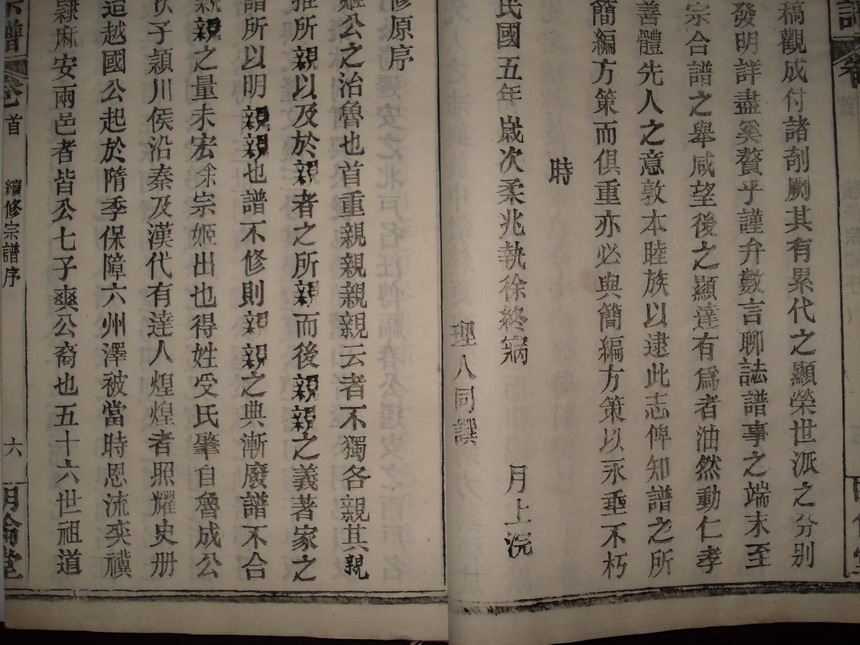 稿觀成付諸剞劂其有累代之顯榮世派之分別
發明詳盡奚贅乎謹弁數言聊誌譜事之端末至
宗合譜之舉咸望後之顯達有爲者油然動仁孝
善體先人之意敦本睦族以逮此志俾知譜之所
簡編方策而俱重亦必與簡編方策以永垂不朽
時
民國五年歲次柔兆執徐終寎 月上浣
理八同譔
修原序
公之治魯也首重親親親親云者不獨各親其親
推所親以及於親者之所親而後親親之義著家之
譜所以明親親也譜不修則親親之典漸廢譜不合
親親之量未宏余宗姬出也得姓受氏肇自魯成公
次子潁川侯沿秦及漢代有達人煌煌者照耀史册
迨越國公起於隋季保障六州澤被當時恩流奕禩
隸麻安兩邑者皆公七子爽公裔也五十六世祖道
宗譜 卷首 續修宗譜序 六 明倫堂